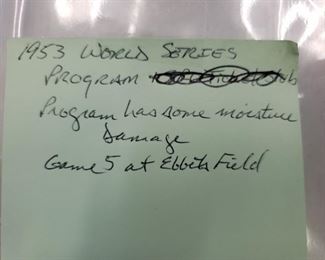 1953 WORLD SERIES
PROGRAM
Program has some moisture
Damage
Game 5 at Ebbets Field